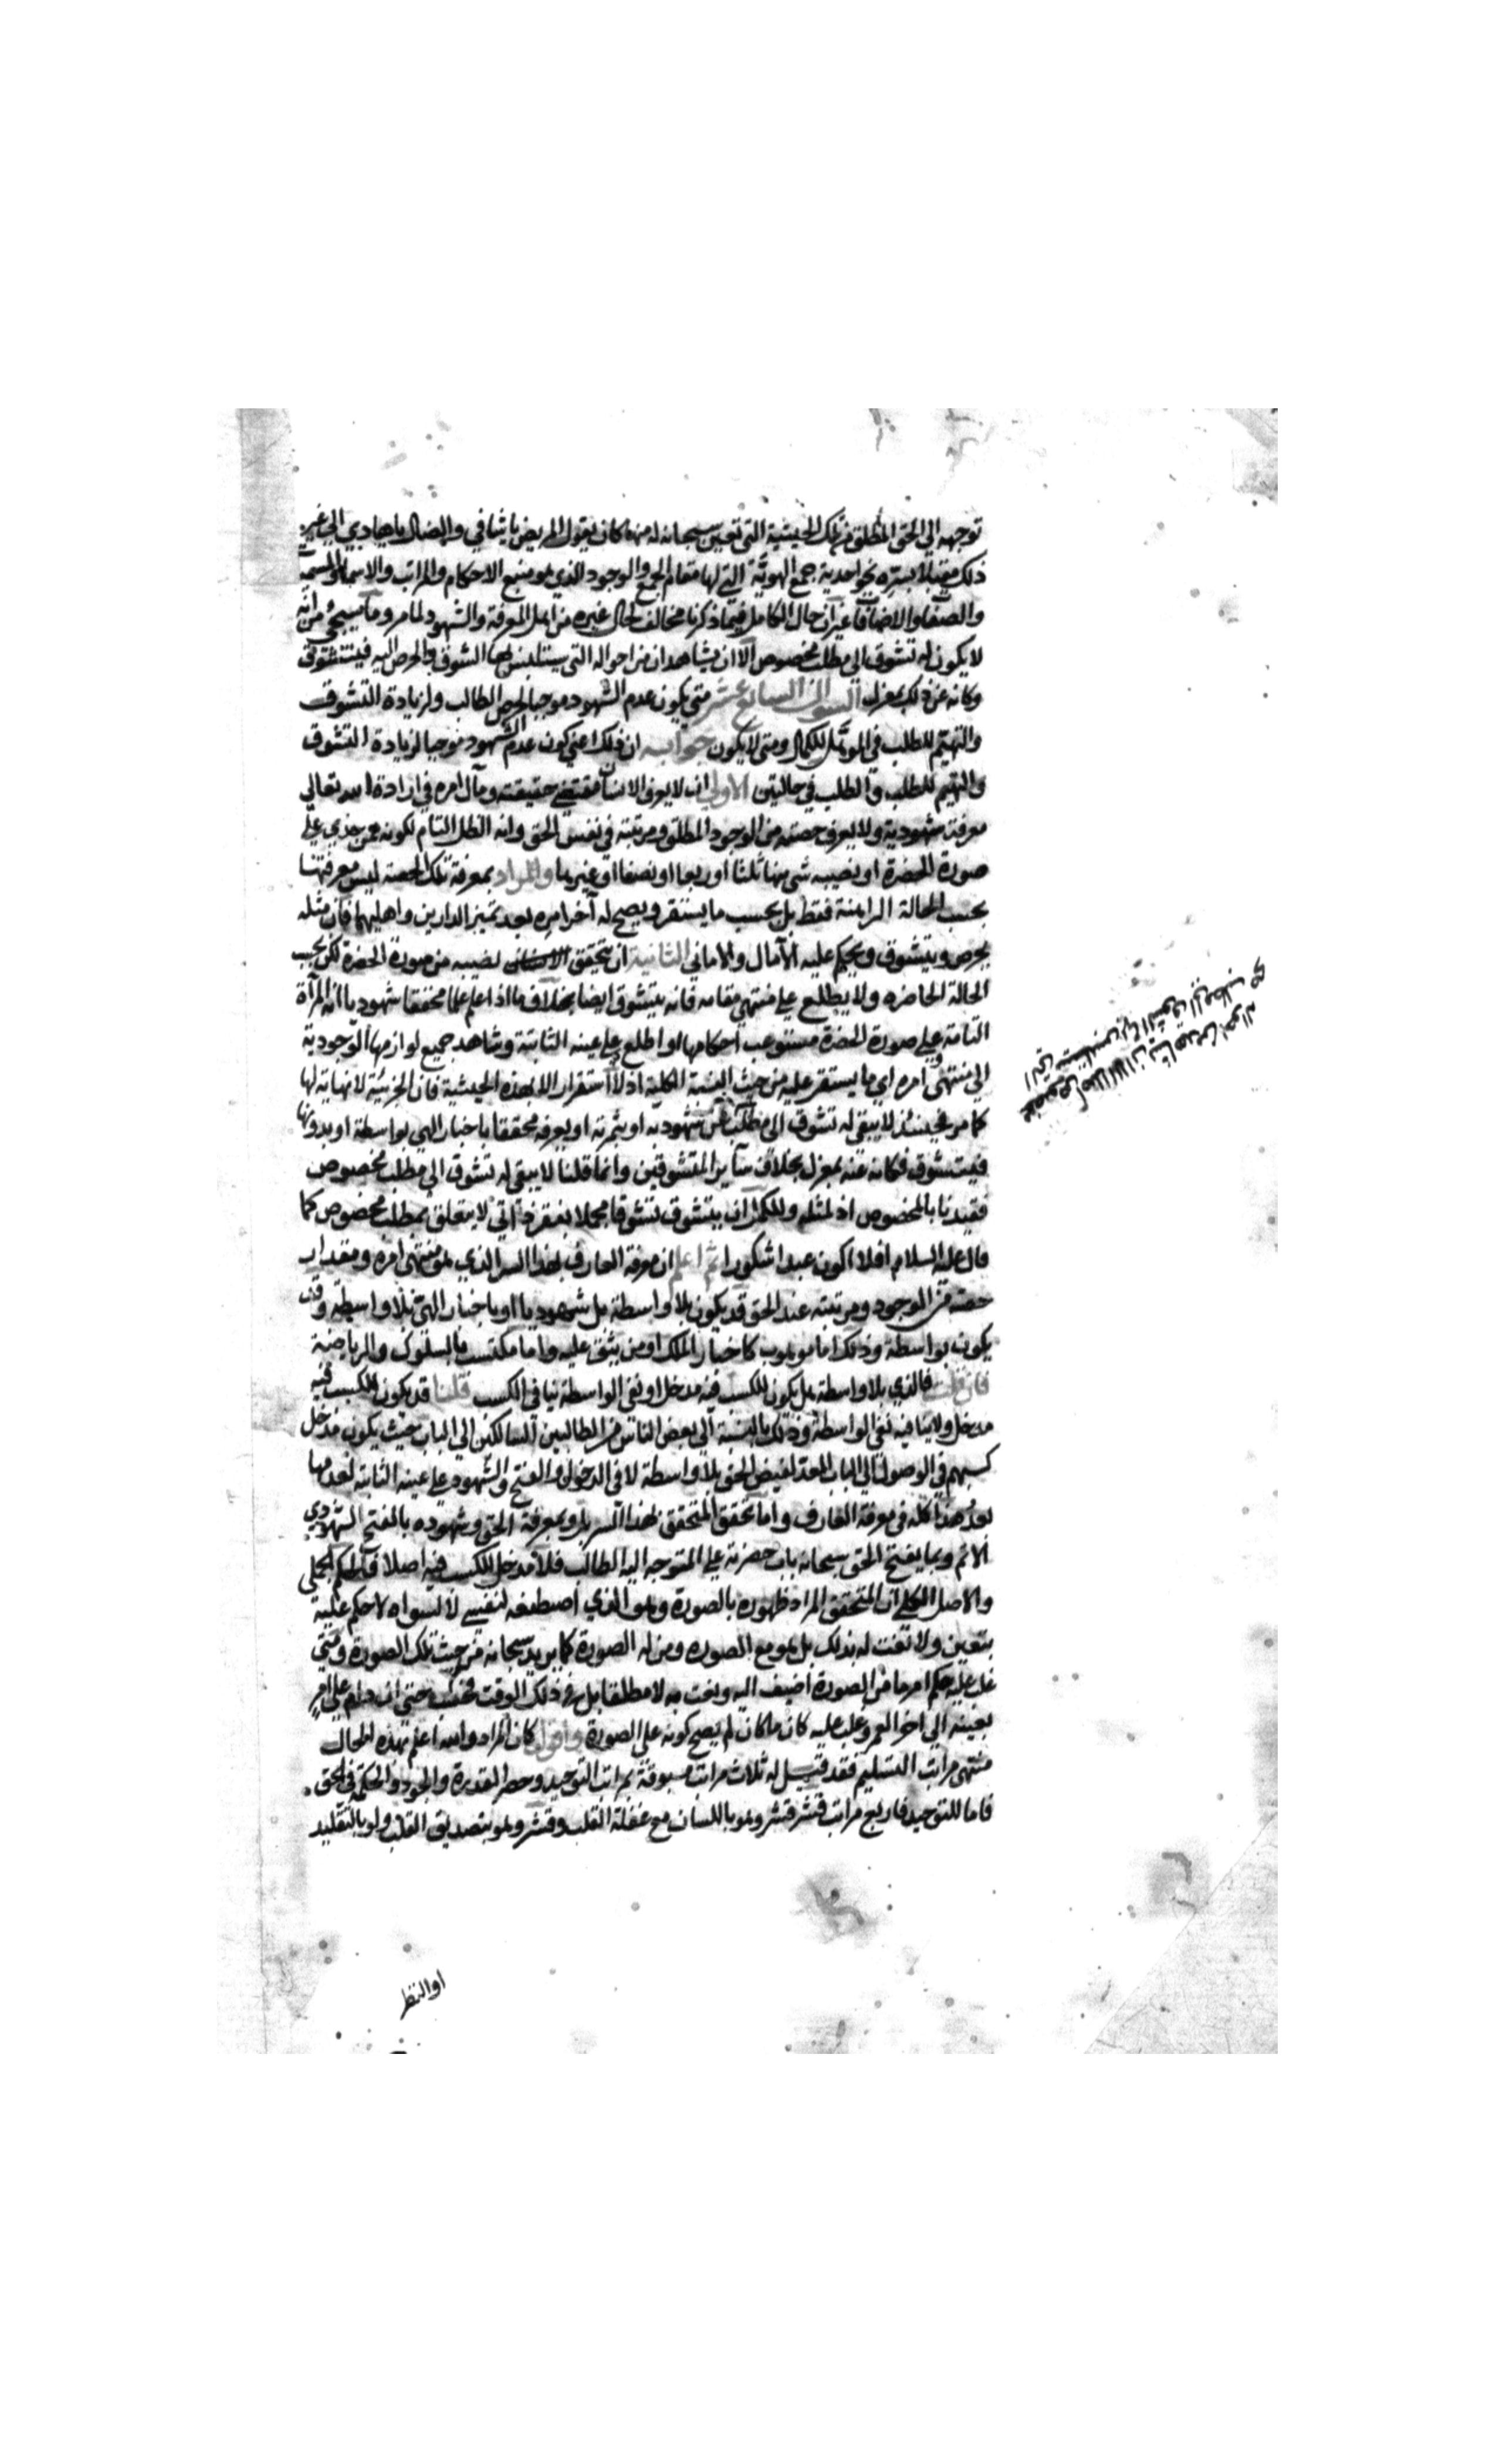 توجهه الى الحق المطلق من تلك الحيثية التي تعين سبحانه له منها كان يقول المريض يا شافي والضال يا هادي الى غير
ذلك مقبلا بستره نحو احدية جمع الهوية التي لها مقام الجمع والوجود الذي هو منبع الاحكام والمراتب والاسماء والمسمية
والصفات والاضافات غير ان حال الكامل فيما ذكرنا مخالف لحال غيره من اهل المعرفة والشهود لما مر وما سيجئ من انه
لا يكون له تشوق الى مطلب مخصوص الا ان يشاهد ان من احواله التي سيتلبس بها الشوق والحرص اليه فيتشوق
وكانه عن ذلك بمعزل السوال السابع عشر متى يكون عدم الشهود موجبا لحرص الطالب ولزيادة التشوق
والتهيم للطلب في الموهل للكمال ومتى لا يكون جوابه ان ذلك اعني كون عدم الشهود موجبا لزيادة التشوق
والتهيم للطلب والطلب في حالتين الاولى ان لا يعرف الانسان مقتضى حقيقته ومآل امره في ارادة الله تعالى
معرفة شهودية ولا يعرف حصته من الوجود المطلق ومرتبته في نفس الحق وانه الظل التام لكونه ممن حذي على
صورة الحضرة او نصيبه شئ منها ثلثا او ربعا او نصفا او غيرها والمراد بمعرفة تلك الحصة ليس معرفتها
بحسب الحالة الراهنة فقط بل بحسب ما يستقر ويصح له آخر امره بعد تميز الدارين واهليهما فان مثله
يحرص ويتشوق ويحكم عليه الآمال والاماني الثانية ان يتحقق نصيبه من صورة الحضرة لكن بحسب
الحالة الحاضره ولا يطلع على منتهى مقامه فانه يتشوق ايضا بخلاف ما اذا علم علما محققا شهوديا انه المرآة
التامة على صورة الحضرة مستوعب احكامها او اطلع على عينه الثابتة وشاهد جميع لوازمها الوجودية
الى منتهى امره اي ما يستقر عليه من حيث النسبة الكلية اذ لا استقرار الا بهذه الحيثية فان الجزئية لا نهاية لها
كما مر فحينئذ لا يبقى له تشوق الى مطلب شهوديه او بثمرته او يعرفه محققا باخبار الهي بواسطة او بدونها
فيتشوق فكانه عنه بمعزل بخلاف سائر المتشوقين وانما قلنا لا يبقى له تشوق الى مطلب مخصوص
فقيدنا بالمخصوص اذ لمثله وللكمل ان يتشوق تشوقا مجملا بفقر ذاتي لا يتعلق بمطلب مخصوص كما
قال عليه السلام افلا اكون عبدا شكورا ثم اعلم ان معرفة العارف بهذا السر الذي هو منتهى امره ومقدار
حصته من الوجود ومرتبته عند الحق قد يكون بلا واسطة بل شهوديا او باخبار الهي بلا واسطة وقد
يكون بواسطة وذلك اما موهوب كاخبار الملك او من يثق عليه واما مكتسب بالسلوك والرياضة
فان قلت فالذي بلا واسطة هل يكون للكسب فيه مدخل او نفي الواسطة ينافي الكسب قلنا قد يكون للكسب فيه
مدخل ولا ينافيه نفي الواسطة وذلك بالنسبة الى بعض الناس من الطالبين السالكين الى الباب حيث يكون مدخل
كسبهم في الوصول الى الباب المعد لفيض الحق بلا واسطة لا في الدخول والفتح والشهود على عينه الثابتة
هذا كله في معرفة العارف واما تحقق المتحقق بهذا السر بل وبمعرفة الحق وشهوده بالفتح الشهودي
الاتم وبما يفتح الحق سبحانه باب حضرته على المتوجه اليه الطالب فلا مدخل للكسب فيه اصلا فالحكم الجملي
والاصل الكلي ان المتحقق المراد ظهوره بالصورة وهو الذي اصطنعه لنفسه لا لسواه لا حكم عليه
بتعين ولا نعت له بذلك بل هو مع الصوره ومن له الصورة كما يريد سبحانه من حيث تلك الصورة ومتى
غلب عليه حكم امر ما من الصورة اضيف اليه ونعت به لا مطلقا بل في ذلك الوقت حتى ان دام على امر
بعينه الى اخر العمر وغلب عليه كان ما كان لم يصح كونه على الصورة واقول كان المراد والله اعلم بهذه الحال
منتهى مراتب التسليم فقد قيل له ثلاث مراتب مسبوقة بمراتب التوحيد وحصر القدرة والجود والحكمة في الحق
فاما للتوحيد فاربع مراتب قشر قشر وهو باللسان مع غفلة القلب وقشر وهو بتصديق القلب ولو بالتقليد
او النظر